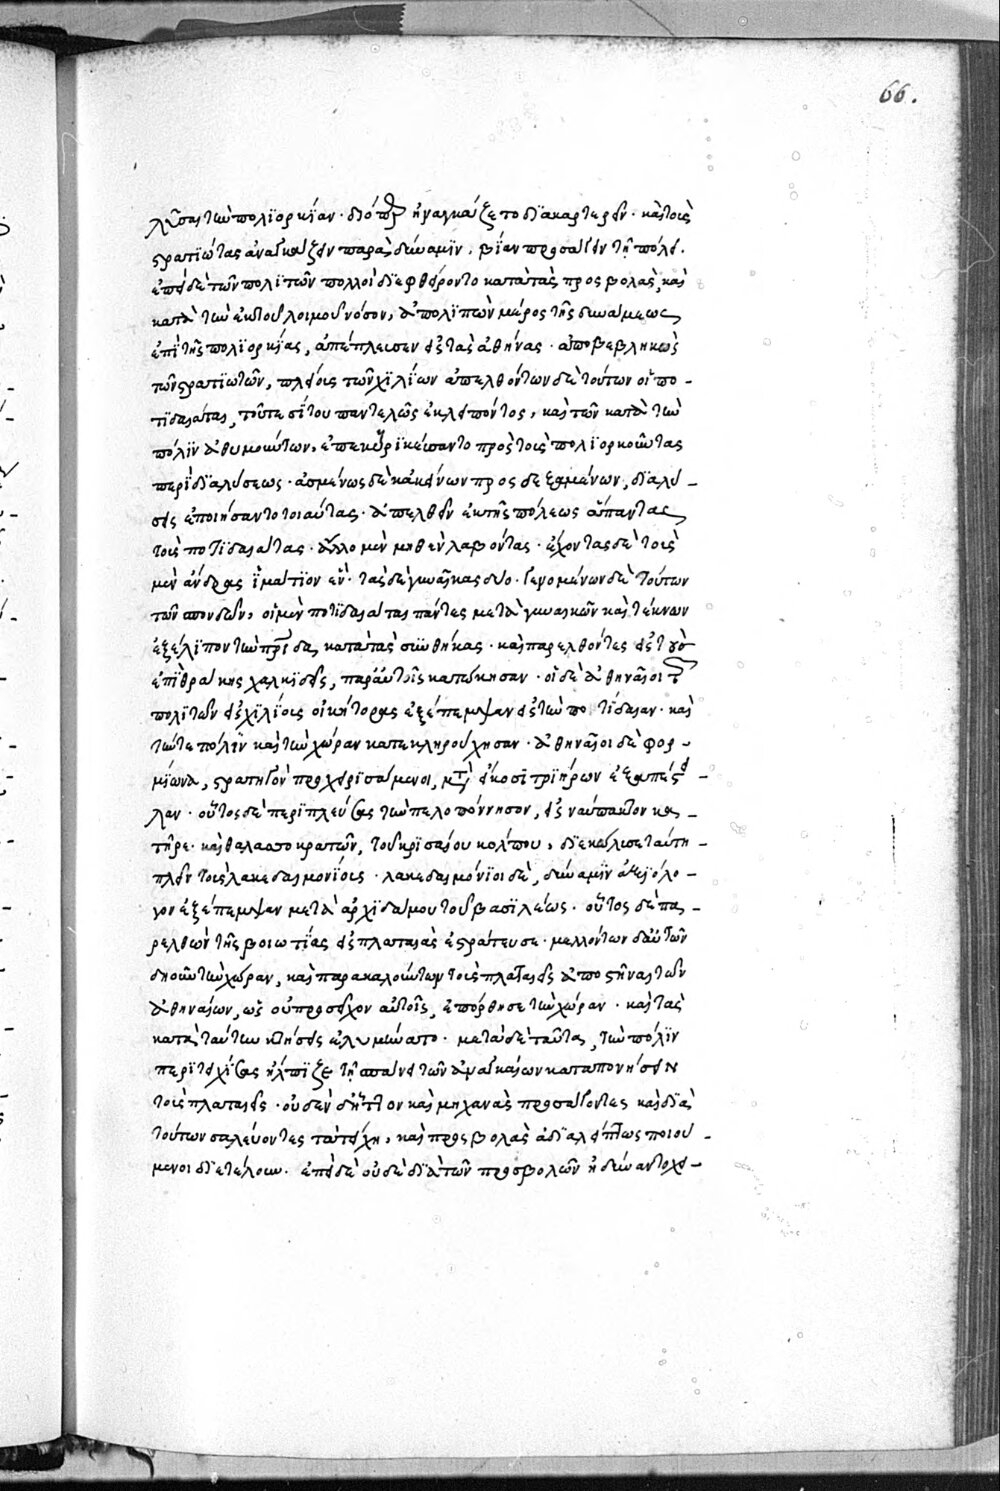 66.
λῦσαι τὴν πολϊορκίαν · διόπερ ἠναγκάζετο δϊακαρτερεῖν · καὶ τοὺς
στρατϊώτας ἀναγκάζειν παρὰ δύναμϊν, βίαν προσάγειν τῇ πόλει.
ἐπεὶ δὲ τῶν πολϊτῶν πολλοὶ δϊεφθείροντο κατὰ τὰς προσβολὰς, καὶ
κατὰ τὴν ἐκ τοῦ λοιμοῦ νόσον, ἀπολϊπὼν μέρος τῆς δυνάμεως
ἐπὶ τῆς πολϊορκίας, ἀπέπλευσεν εἰς τὰς ἀθήνας · ἀποβεβληκὼς
τῶν στρατϊωτῶν, πλείους τῶν χϊλίων ἀπελθόντων δὲ τούτων οἱ πο -
τϊδαιάται, τοῦ τε σίτου παντελῶς ἐκλείποντος, καὶ τῶν κατὰ τὴν
πόλϊν ἀθυμούντων, ἐπεκηρϊκεύσαντο πρὸς τοὺς πολϊορκοῦντας
περὶ δϊαλύσεως · ἀσμένως δὲ κἀκείνων προσδεξαμένων, δϊαλύ -
σεις ἐποιήσαντο τοιαύτας · ἀπελθεῖν ἐκ τῆς πόλεως ἅπαντας
τοὺς ποτϊδαιάτας · ἄλλο μὲν μηθὲν λαβόντας · ἔχοντας δὲ τοὺς
μὲν ἄνδρας ἱμάτϊον ἓν · τὰς δὲ γυναῖκας δύο · γενομένων δὲ τούτων
τῶν σπονδῶν, οἱ μὲν ποτϊδαιάται πάντες μετὰ γυναικῶν καὶ τέκνων
ἐξέλϊπον τὴν πρίδα κατὰ τὰς συνθήκας · καὶ παρελθόντες εἰς τοὺς
ἐπὶ θράκης χαλκϊδεῖς, παρ' αὐτοῖς κατώκησαν · οἱ δὲ ἀθηναῖοι τ
πολϊτῶν εἰς χϊλίους οἰκήτορας ἐξέπεμψαν εἰς τὴν ποτίδαιαν · καὶ
τήν τε πόλϊν καὶ τὴν χώραν κατεκληρούχησαν · ἀθηναῖοι δὲ φορ -
μίωνα, στρατηγὸν προχειρϊσάμενοι, μετὰ εἴκοσϊ τρϊήρων ἐξαπέστει -
λαν · οὗτος δὲ περϊπλεύσας τὴν πελοπόννησον, εἰς ναύπακτον κα -
τῆρε · καὶ θαλασσοκρατῶν, τοῦ κρϊσαίου κόλπου, δϊεκώλυσε ταύτῃ -
πλεῖν τοὺς λακεδαιμονίους · λακεδαιμόνϊοι δὲ, δύναμϊν ἀξϊόλο -
γον ἐξέπεμψαν μετὰ ἀρχϊδάμου τοῦ βασϊλέως · οὗτος δὲ πα -
ρελθὼν τῆς βοιωτίας εἰς πλαταιὰς ἐστράτευσε · μελλόντων δ' αὐτῶν
δηοῦν τὴν χώραν, καὶ παρακαλούντων τοὺς πλαταιεῖς ἀποστῆναι τῶν
ἀθηναίων, ὡς οὐ προσεῖχον αὐτοῖς, ἐπόρθησε τὴν χώραν · καὶ τὰς
κατὰ ταύτην κτήσεις ἐλυμαίνετο · μετὰ δὲ ταῦτα, τὴν πόλϊν
περϊτειχίσας ἤλπϊζε τῇ σπάνει τῶν ἀναγκαίων καταπονήσειν
τοὺς πλαταιεῖς · οὐδὲν δ' ἧττον καὶ μηχανὰς προσάγοντες καὶ δϊὰ
τούτων σαλεύοντες τὰ τείχη, καὶ προσβολὰς ἀδϊαλείπτως ποιού -
μενοι δϊετέλουν · ἐπεὶ δὲ οὐδὲ δϊὰ τῶν προσβολῶν ἠδύναντο χει -